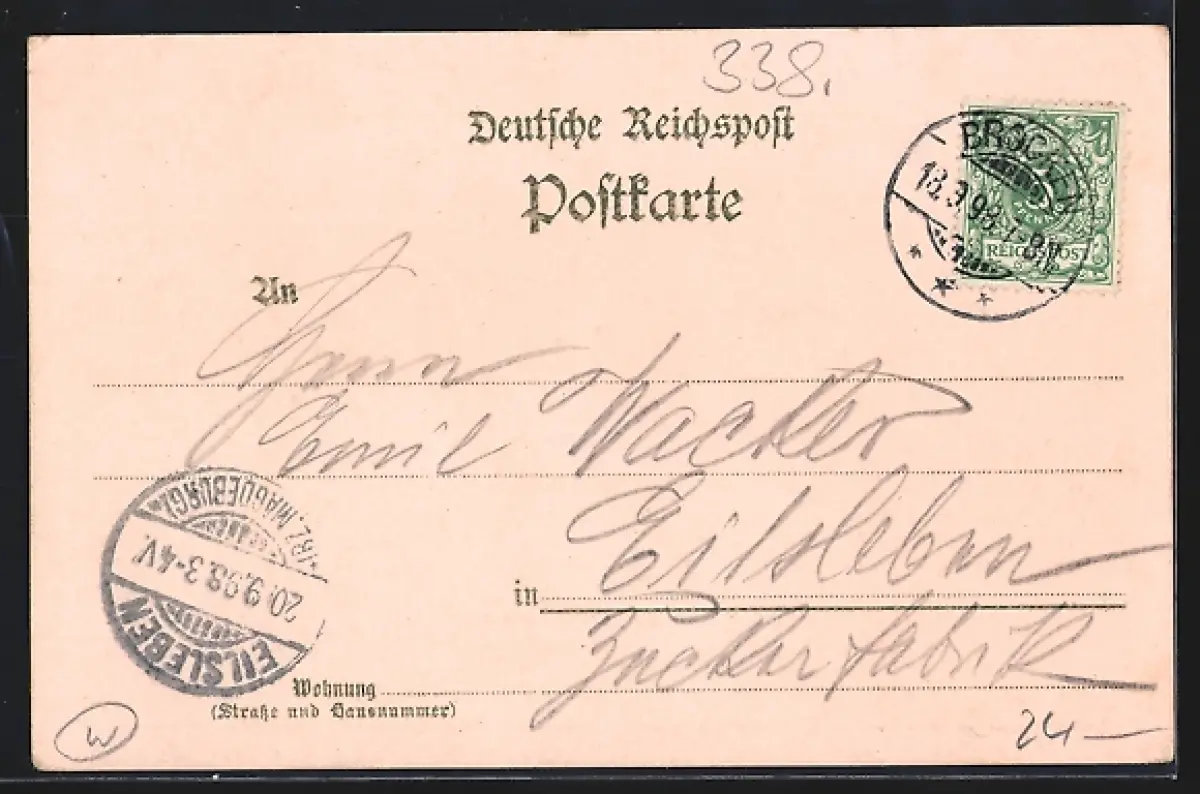 338.
Deutsche Reichspost
Postkarte
BROCKEN
18.9.98. 7-8N
REICHSPOST
An
Herrn
Emil Wacker
Eilsleben
in
Zuckerfabrik
(BZ. MAGDEBURG)
20.9.98. 3-4V.
EILSLEBEN
Wohnung
(Straße und Hausnummer)
W
24—